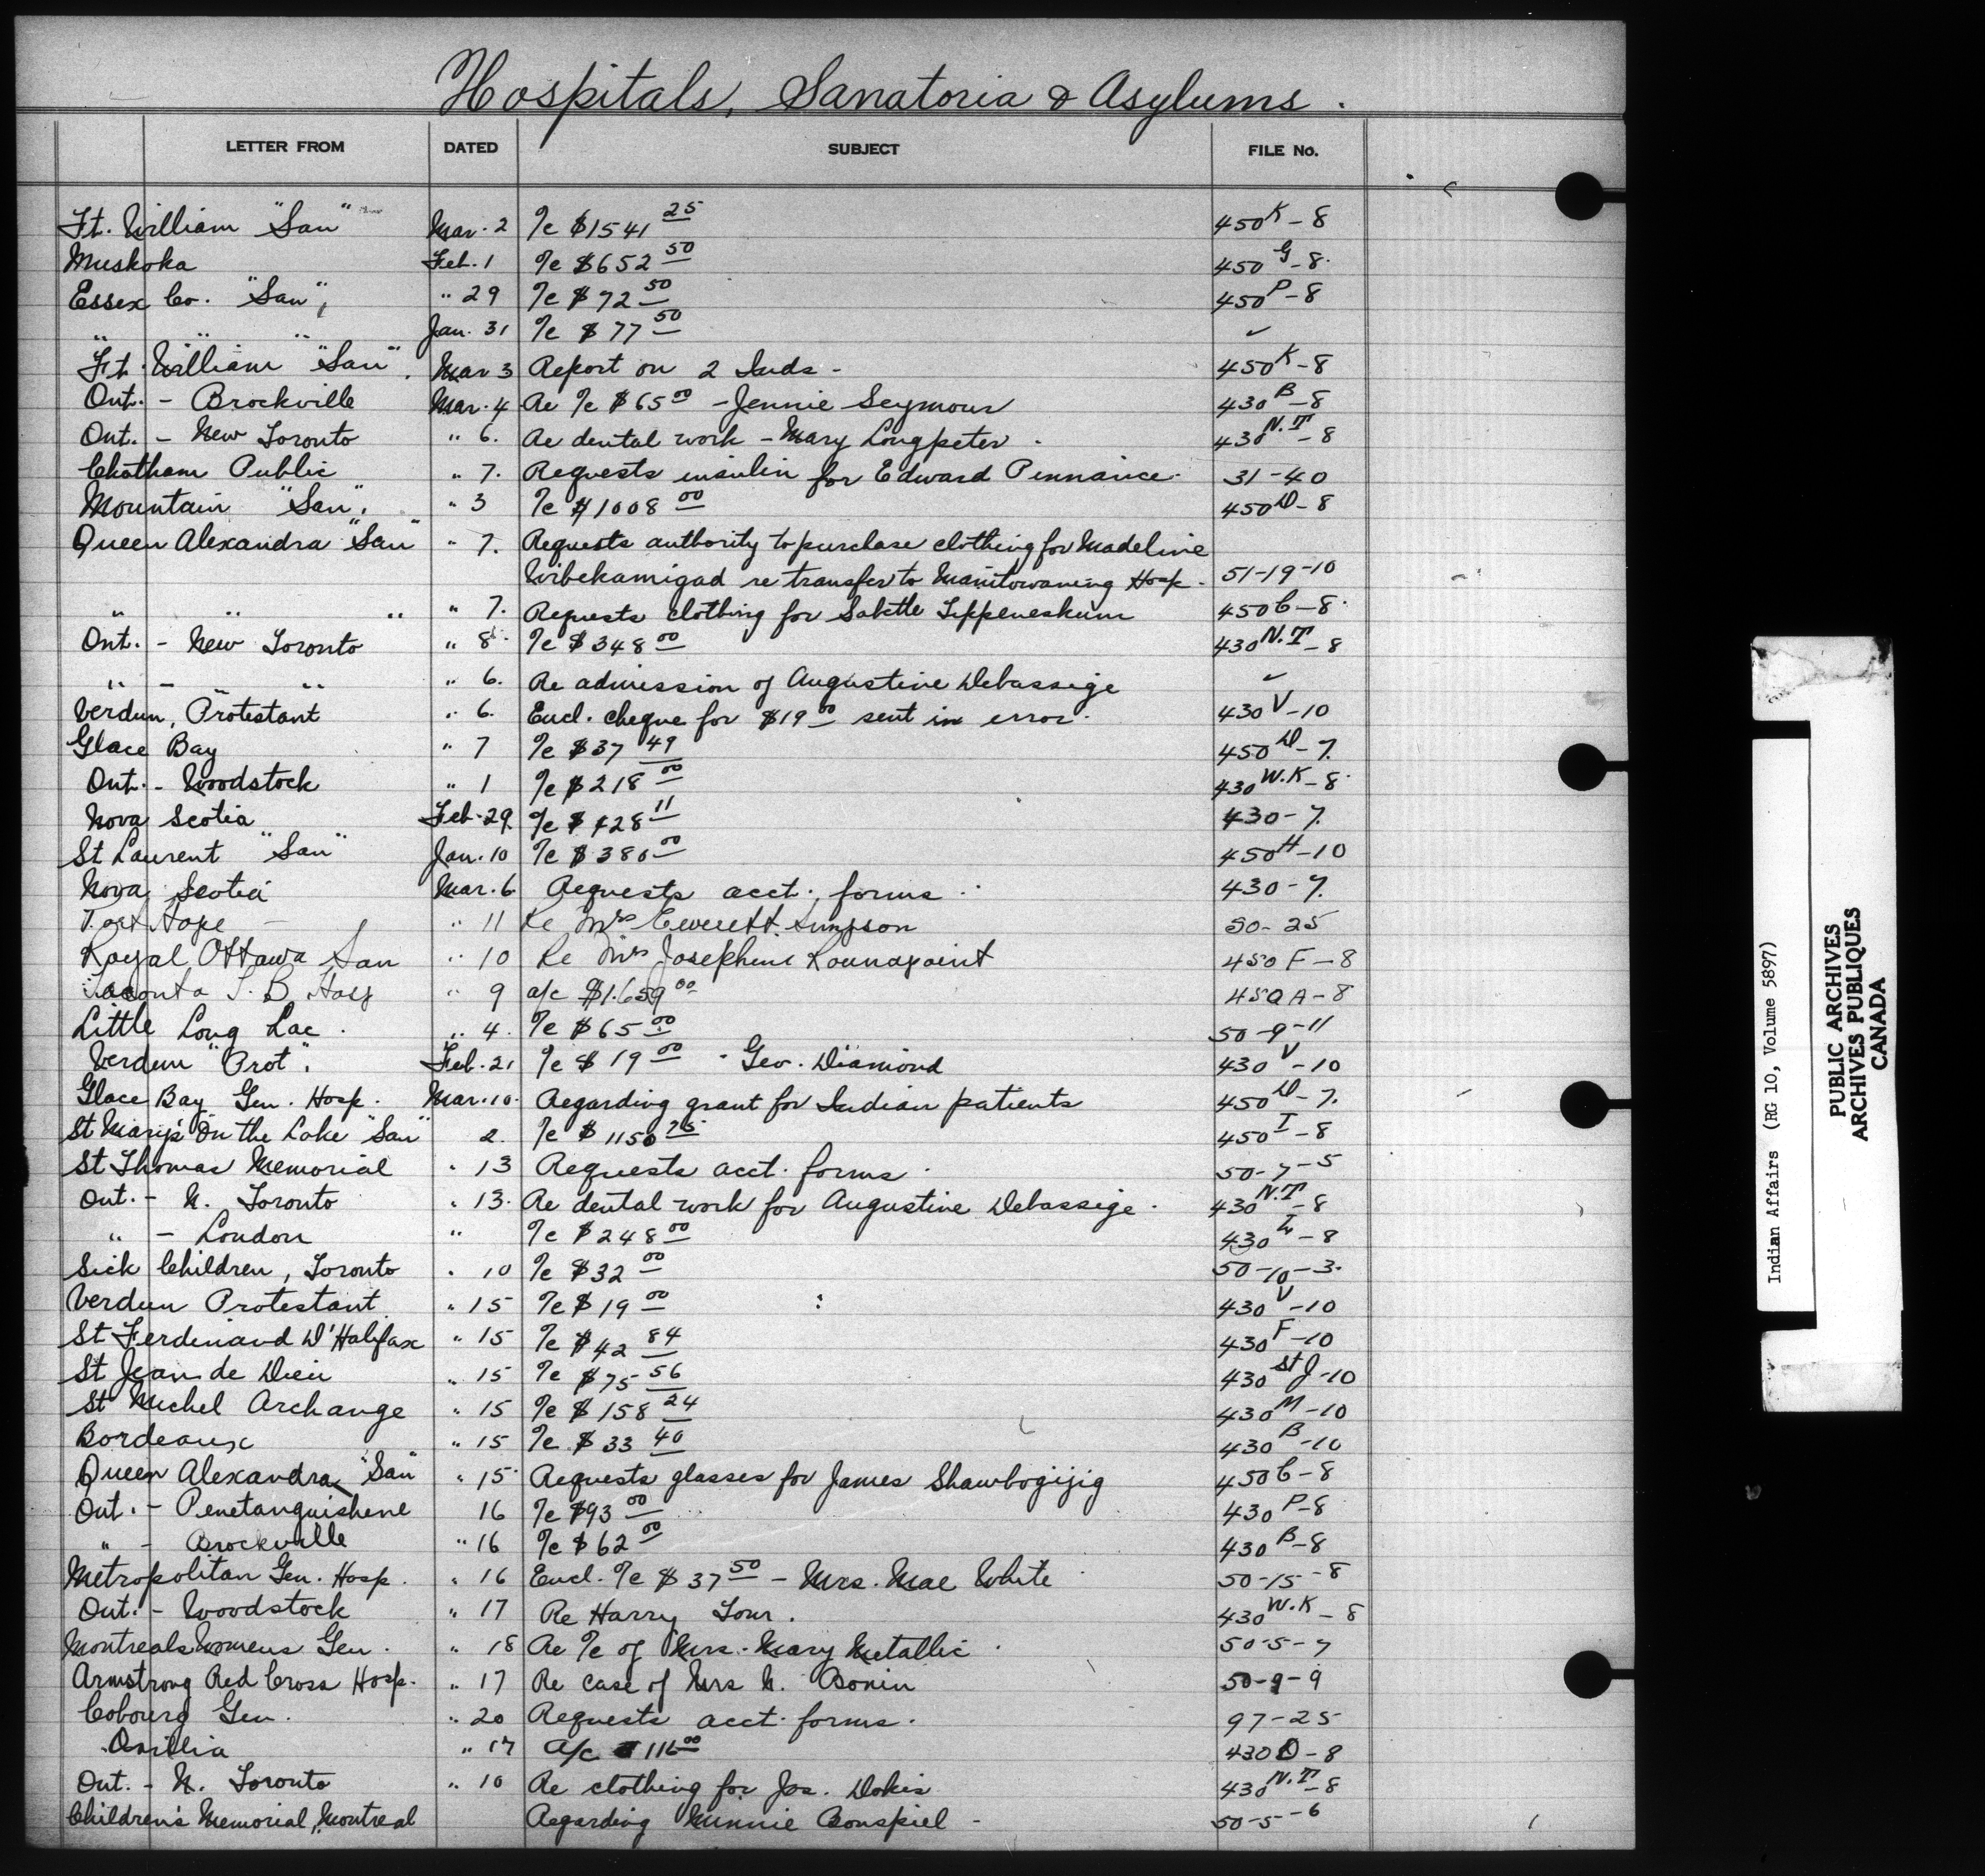 Hospitals, Sanatoria & Asylums.
LETTER FROM DATED SUBJECT FILE No.
Ft. William "San" Mar. 2 a/c $1541 25 450 K-8
Muskoka Feb. 1 a/c $652 50 450 G-8.
Essex Co. "San", " 29 a/c $72 50 450 P-8
" " " Jan. 31 a/c $77 50 ✓
Ft. William "San". Mar 3 Report on 2 Inds - 450 K-8
Ont. - Brockville Mar. 4 Re a/c $65 00 - Jennie Seymour 430 B-8
Ont. - New Toronto " 6. Re dental work - Mary Longpeter. 430 N.T-8
Chatham Public " 7. Requests insulin for Edward Pennance. 31-40
Mountain "San". " 3 a/c $1008 00 450 D-8
Queen Alexandra "San" " 7. Requests authority to purchase clothing for Madeline
Wibekamigad re transfer to Manitowaning Hosp. 51-19-10
" " " " 7. Requests clothing for Sabette Tippeneskum 450 C-8.
Ont. - New Toronto " 8. a/c $348 00 430 N.T-8
" - " " " 6. Re admission of Augustine Debassige ✓
Verdun, Protestant " 6. Encl. cheque for $19 00 sent in error. 430 V-10
Glace Bay " 7 a/c $37 49 450 D-7.
Ont. - Woodstock " 1 a/c $218 00 430 W.K-8.
Nova Scotia Feb. 29. a/c $428 11 430-7.
St Laurent "San" Jan. 10 a/c $380 00 450 H-10
Nova Scotia Mar. 6 Requests acct. forms. 430-7.
Port Hope " 11 Re Mrs Everett Simpson 50-25
Royal Ottawa San " 10 Re Mrs Josephine Rounapoint 450 F-8
Toronto T.B Hosp " 9 a/c $1.659 00 450 A-8
Little Long Lac. " 4. a/c $65 00 50-9-11
Verdun "Prot". Feb. 21 a/c $19 00 - Geo. Diamond 430 V-10
Glace Bay Gen. Hosp. Mar. 10. Regarding grant for Indian patients 450 D-7.
St Mary's On the Lake "San" 2. a/c $1150 75 450 I-8
St Thomas Memorial " 13 Requests acct. forms. 50-7-5
Ont. - N. Toronto " 13. Re dental work for Augustine Debassige. 430 N.T-8
" - London " a/c $248 00 430 L-8
Sick Children, Toronto " 10 a/c $32 00 50-10-3.
Verdun Protestant. " 15 a/c $19 00 430 V-10
St Ferdinand D'Halifax " 15 a/c $42 84 430 F-10
St Jean de Dieu " 15 a/c $75 56 430 St J-10
St Michel Archange " 15 a/c $158 24 430 M-10
Bordeaux " 15 a/c $33 40 430 B-10
Queen Alexandra "San" " 15 Requests glasses for James Shawbogijig 450 C-8
Ont. - Penetanguishene 16 a/c $93 00 430 P-8
" - Brockville " 16 a/c $62 00 430 B-8
Metropolitan Gen. Hosp. " 16 Encl. a/c $37 50 - Mrs. Mae White 50-15-8
Ont. - Woodstock " 17 Re Harry Tour. 430 W.K-8
Montreal Womens Gen. " 18 Re a/c of Mrs. Mary Metallic. 50-5-7
Armstrong Red Cross Hosp. " 17 Re case of Mrs N. Bonin 50-9-9
Cobourg Gen. " 20 Requests acct. forms. 97-25
Orillia " 17 a/c $116 00 430 O-8
Ont. - N. Toronto " 10 Re clothing for Jos. Dokis 430 N.T-8
Children's Memorial, Montreal Regarding Minnie Bonspiel - 50-5-6
Indian Affairs (RG 10, Volume 5897)
PUBLIC ARCHIVES
ARCHIVES PUBLIQUES
CANADA